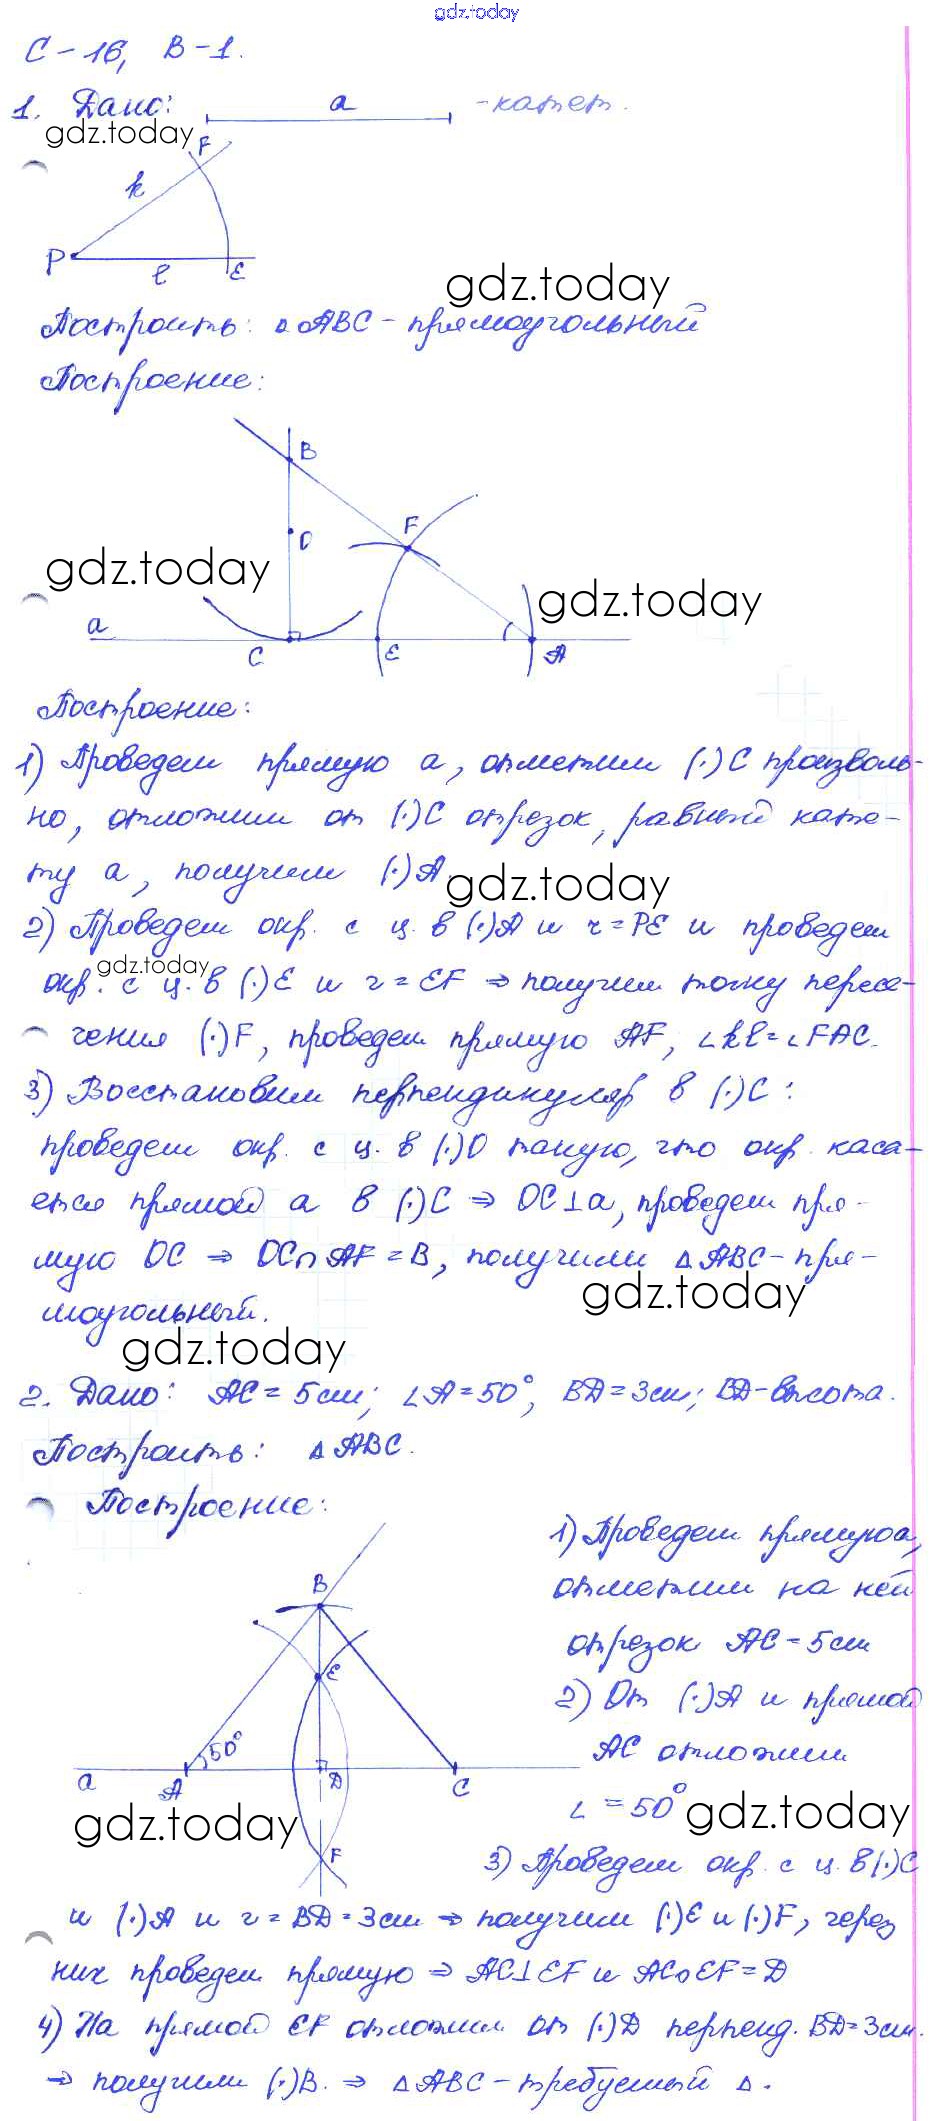 gdz.today
С-16, В-1.
1. Дано: a - катет.
gdz.today
F
k
P l E
gdz.today
Построить: △ABC - прямоугольный
Построение:
B
F
O
gdz.today
gdz.today
a
C E A
Построение:
1) Проведем прямую a, отметим (·)C произволь-
но, отложим от (·)C отрезок, равный кате-
ту a, получим (·)A.
gdz.today
2) Проведем окр. с ц. в (·)A и r=PE и проведем
gdz.today
окр. с ц. в (·)E и r=EF ⇒ получим точку пересе-
чения (·)F, проведем прямую AF, ∠kl=∠FAC.
3) Восстановим перпендикуляр в (·)C:
проведем окр. с ц. в (·)O такую, что окр. каса-
ется прямой a в (·)C ⇒ OC⊥a, проведем пря-
мую OC ⇒ OC∩AF=B, получили △ABC - пря-
моугольный.
gdz.today
gdz.today
2. Дано: AC=5см; ∠A=50°, BD=3см; BD-высота.
Построить: △ABC.
Построение:
1) Проведем прямую a,
отметим на ней
отрезок AC=5см
2) От (·)A и прямой
AC отложим
∠=50°
B
E
50°
a A D C
F
gdz.today
gdz.today
3) Проведем окр. с ц. в (·)C
и (·)A и r=BD=3см ⇒ получим (·)E и (·)F, через
них проведем прямую ⇒ AC⊥EF и AC∩EF=D
4) На прямой EF отложим от (·)D перпенд. BD=3см.
⇒ получили (·)B. ⇒ △ABC - требуемый △.